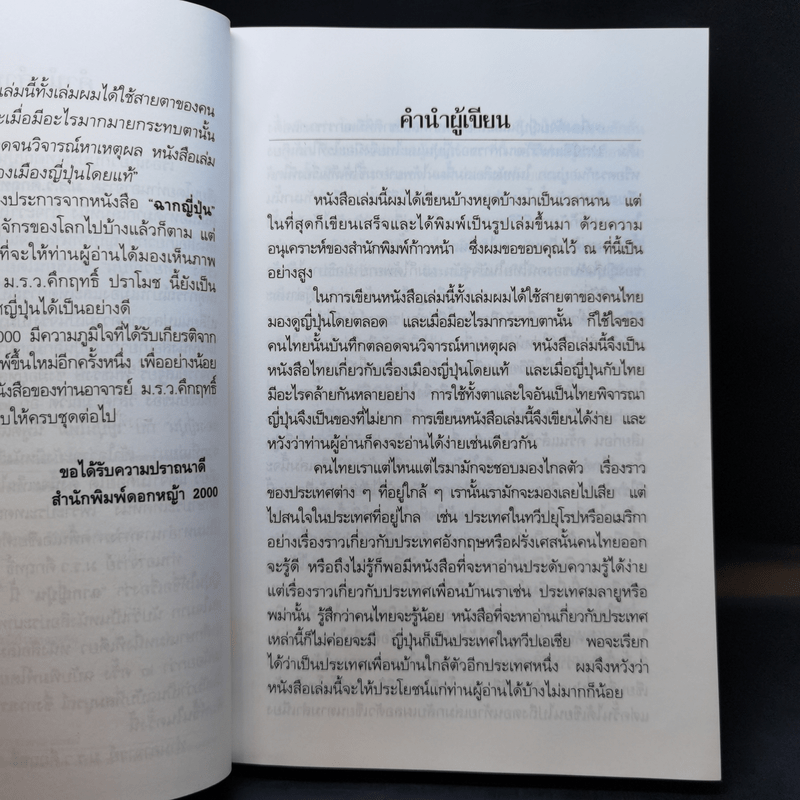 ล่มนี้ทั้งเล่มผมได้ใช้สายตาของคน
ะเมื่อมีอะไรมากมายกระทบตานั้น
ดจนวิจารณ์หาเหตุผล หนังสือเล่ม
องเมืองญี่ปุ่นโดยแท้"
งประการจากหนังสือ "ฉากญี่ปุ่น"
จักรของโลกไปบ้างแล้วก็ตาม แต่
ที่จะให้ท่านผู้อ่านได้มองเห็นภาพ
ม.ร.ว.คึกฤทธิ์ ปราโมช นี้ยังเป็น
ญี่ปุ่นได้เป็นอย่างดี
000 มีความภูมิใจที่ได้รับเกียรติจาก
พ์ขึ้นใหม่อีกครั้งหนึ่ง เพื่ออย่างน้อย
ังสือของท่านอาจารย์ ม.ร.ว.คึกฤทธิ์
บให้ครบชุดต่อไป
ขอได้รับความปราถนาดี
สำนักพิมพ์ดอกหญ้า 2000
คำนำผู้เขียน
หนังสือเล่มนี้ผมได้เขียนบ้างหยุดบ้างมาเป็นเวลานาน แต่
ในที่สุดก็เขียนเสร็จและได้พิมพ์เป็นรูปเล่มขึ้นมา ด้วยความ
อนุเคราะห์ของสำนักพิมพ์ก้าวหน้า ซึ่งผมขอขอบคุณไว้ ณ ที่นี้เป็น
อย่างสูง
ในการเขียนหนังสือเล่มนี้ทั้งเล่มผมได้ใช้สายตาของคนไทย
มองดูญี่ปุ่นโดยตลอด และเมื่อมีอะไรมากระทบตานั้น ก็ใช้ใจของ
คนไทยนั้นบันทึกตลอดจนวิจารณ์หาเหตุผล หนังสือเล่มนี้จึงเป็น
หนังสือไทยเกี่ยวกับเรื่องเมืองญี่ปุ่นโดยแท้ และเมื่อญี่ปุ่นกับไทย
มีอะไรคล้ายกันหลายอย่าง การใช้ทั้งตาและใจอันเป็นไทยพิจารณา
ญี่ปุ่นจึงเป็นของที่ไม่ยาก การเขียนหนังสือเล่มนี้จึงเขียนได้ง่าย และ
หวังว่าท่านผู้อ่านก็คงจะอ่านได้ง่ายเช่นเดียวกัน
คนไทยเราแต่ไหนแต่ไรมามักจะชอบมองไกลตัว เรื่องราว
ของประเทศต่าง ๆ ที่อยู่ใกล้ ๆ เรานั้นเรามักจะมองเลยไปเสีย แต่
ไปสนใจในประเทศที่อยู่ไกล เช่น ประเทศในทวีปยุโรปหรืออเมริกา
อย่างเรื่องราวเกี่ยวกับประเทศอังกฤษหรือฝรั่งเศสนั้นคนไทยออก
จะรู้ดี หรือถึงไม่รู้ก็พอมีหนังสือที่จะหาอ่านประดับความรู้ได้ง่าย
แต่เรื่องราวเกี่ยวกับประเทศเพื่อนบ้านเราเช่น ประเทศมลายูหรือ
พม่านั้น รู้สึกว่าคนไทยจะรู้น้อย หนังสือที่จะหาอ่านเกี่ยวกับประเทศ
เหล่านี้ก็ไม่ค่อยจะมี ญี่ปุ่นก็เป็นประเทศในทวีปเอเชีย พอจะเรียก
ได้ว่าเป็นประเทศเพื่อนบ้านใกล้ตัวอีกประเทศหนึ่ง ผมจึงหวังว่า
หนังสือเล่มนี้จะให้ประโยชน์แก่ท่านผู้อ่านได้บ้างไม่มากก็น้อย